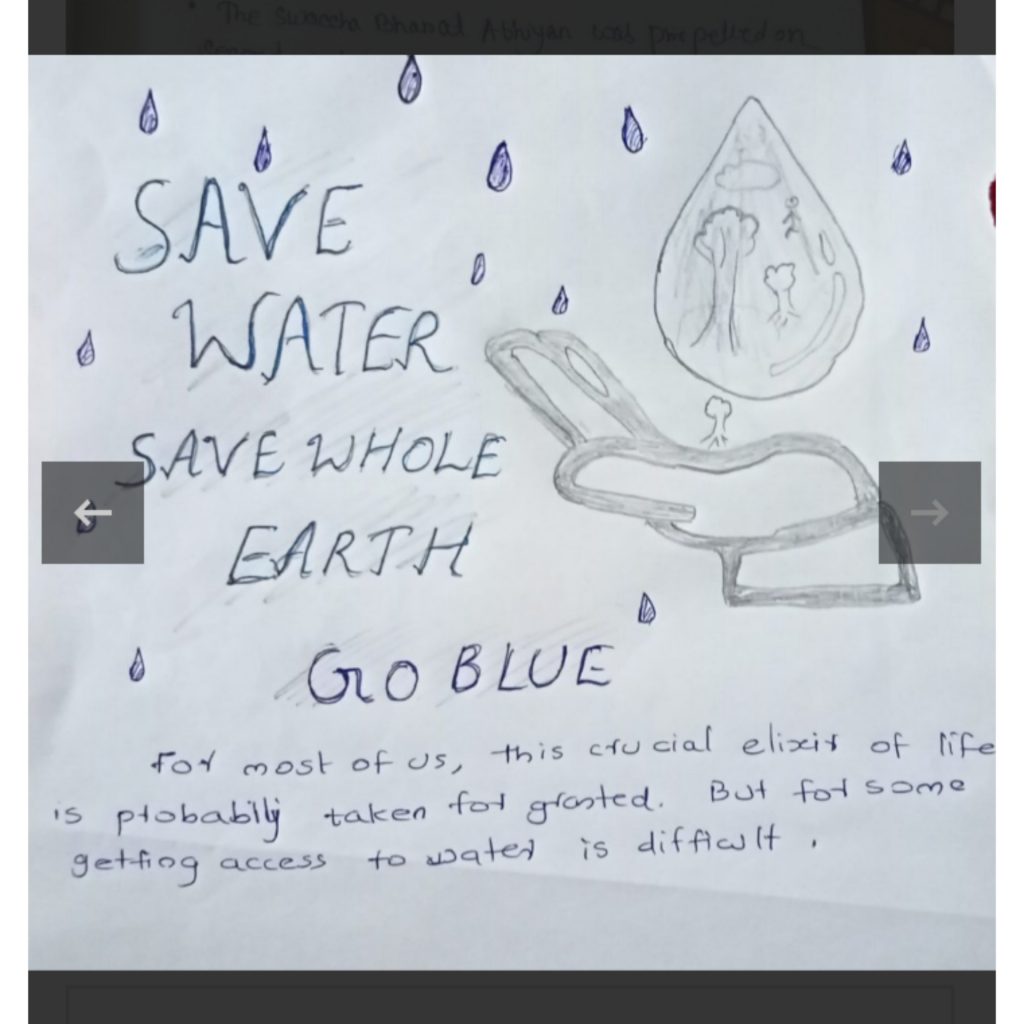 The Swaccha Bharat Abhiyan was propelled on
SAVE
WATER
SAVE WHOLE
EARTH
GO BLUE
For most of us, this crucial elixir of life
is probabilly taken for granted. But for some
getting access to water is difficult.